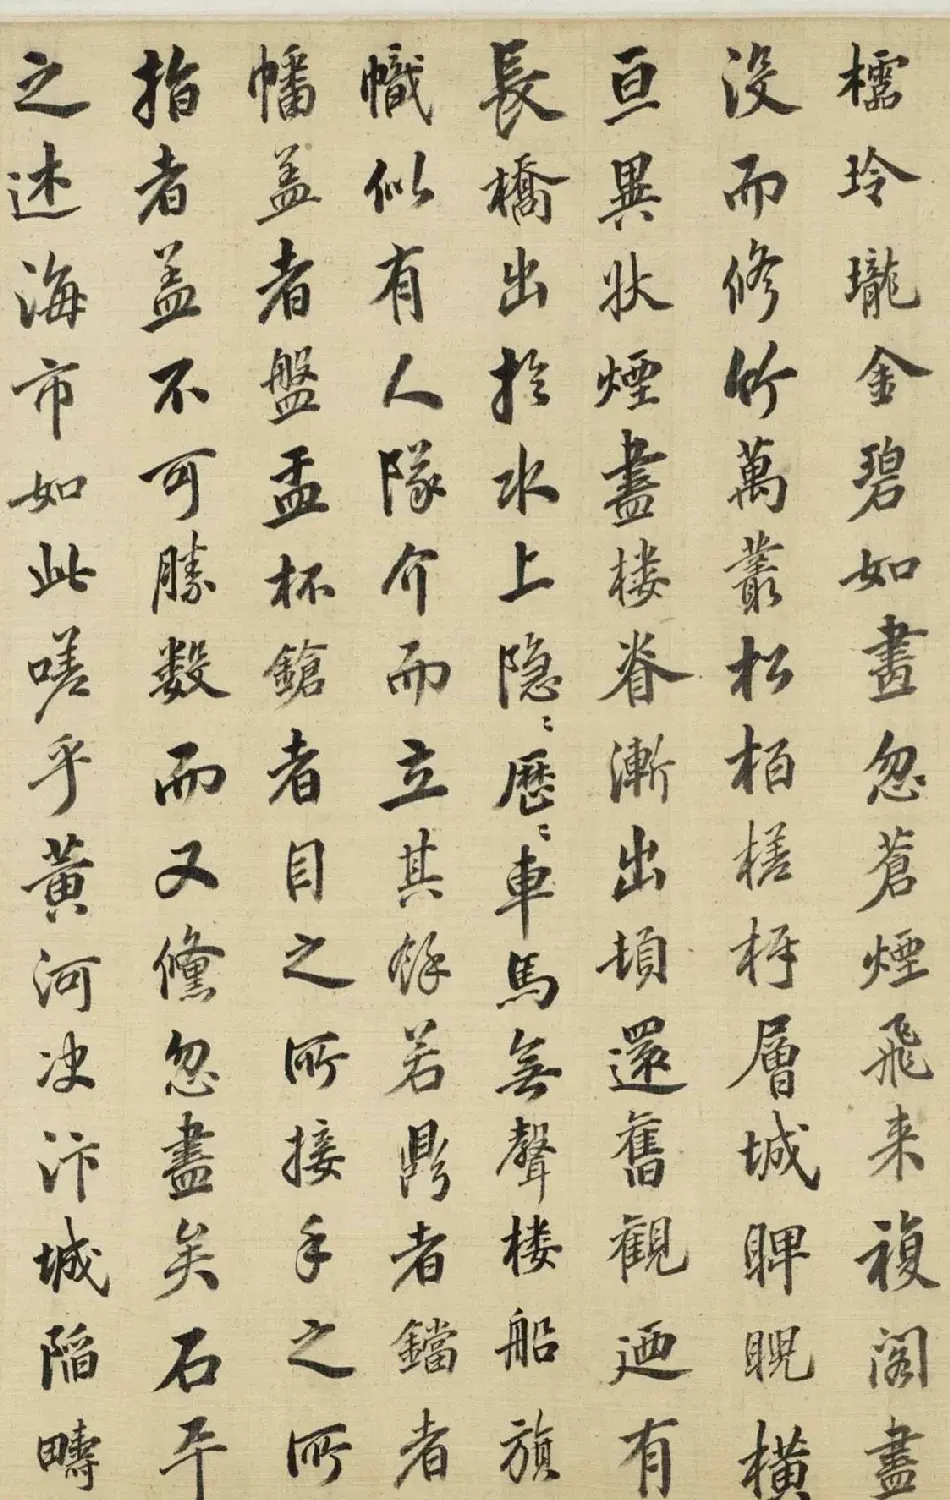 櫺玲瓏金碧如畫忽蒼煙飛来複閣盡
没而修竹萬叢松栢槎枒層城睥睨橫
亘異狀煙盡楼脊漸出頃還舊觀迺有
長橋出於水上隐〻歷〻車馬無聲楼船旗
幟似有人隊介而立其餘若鼎者鐺者
幡盖者盤盂杯鎗者目之所接手之所
指者盖不可勝数而又儵忽盡矣石平
之述海市如此嗟乎黄河决汴城陷疇